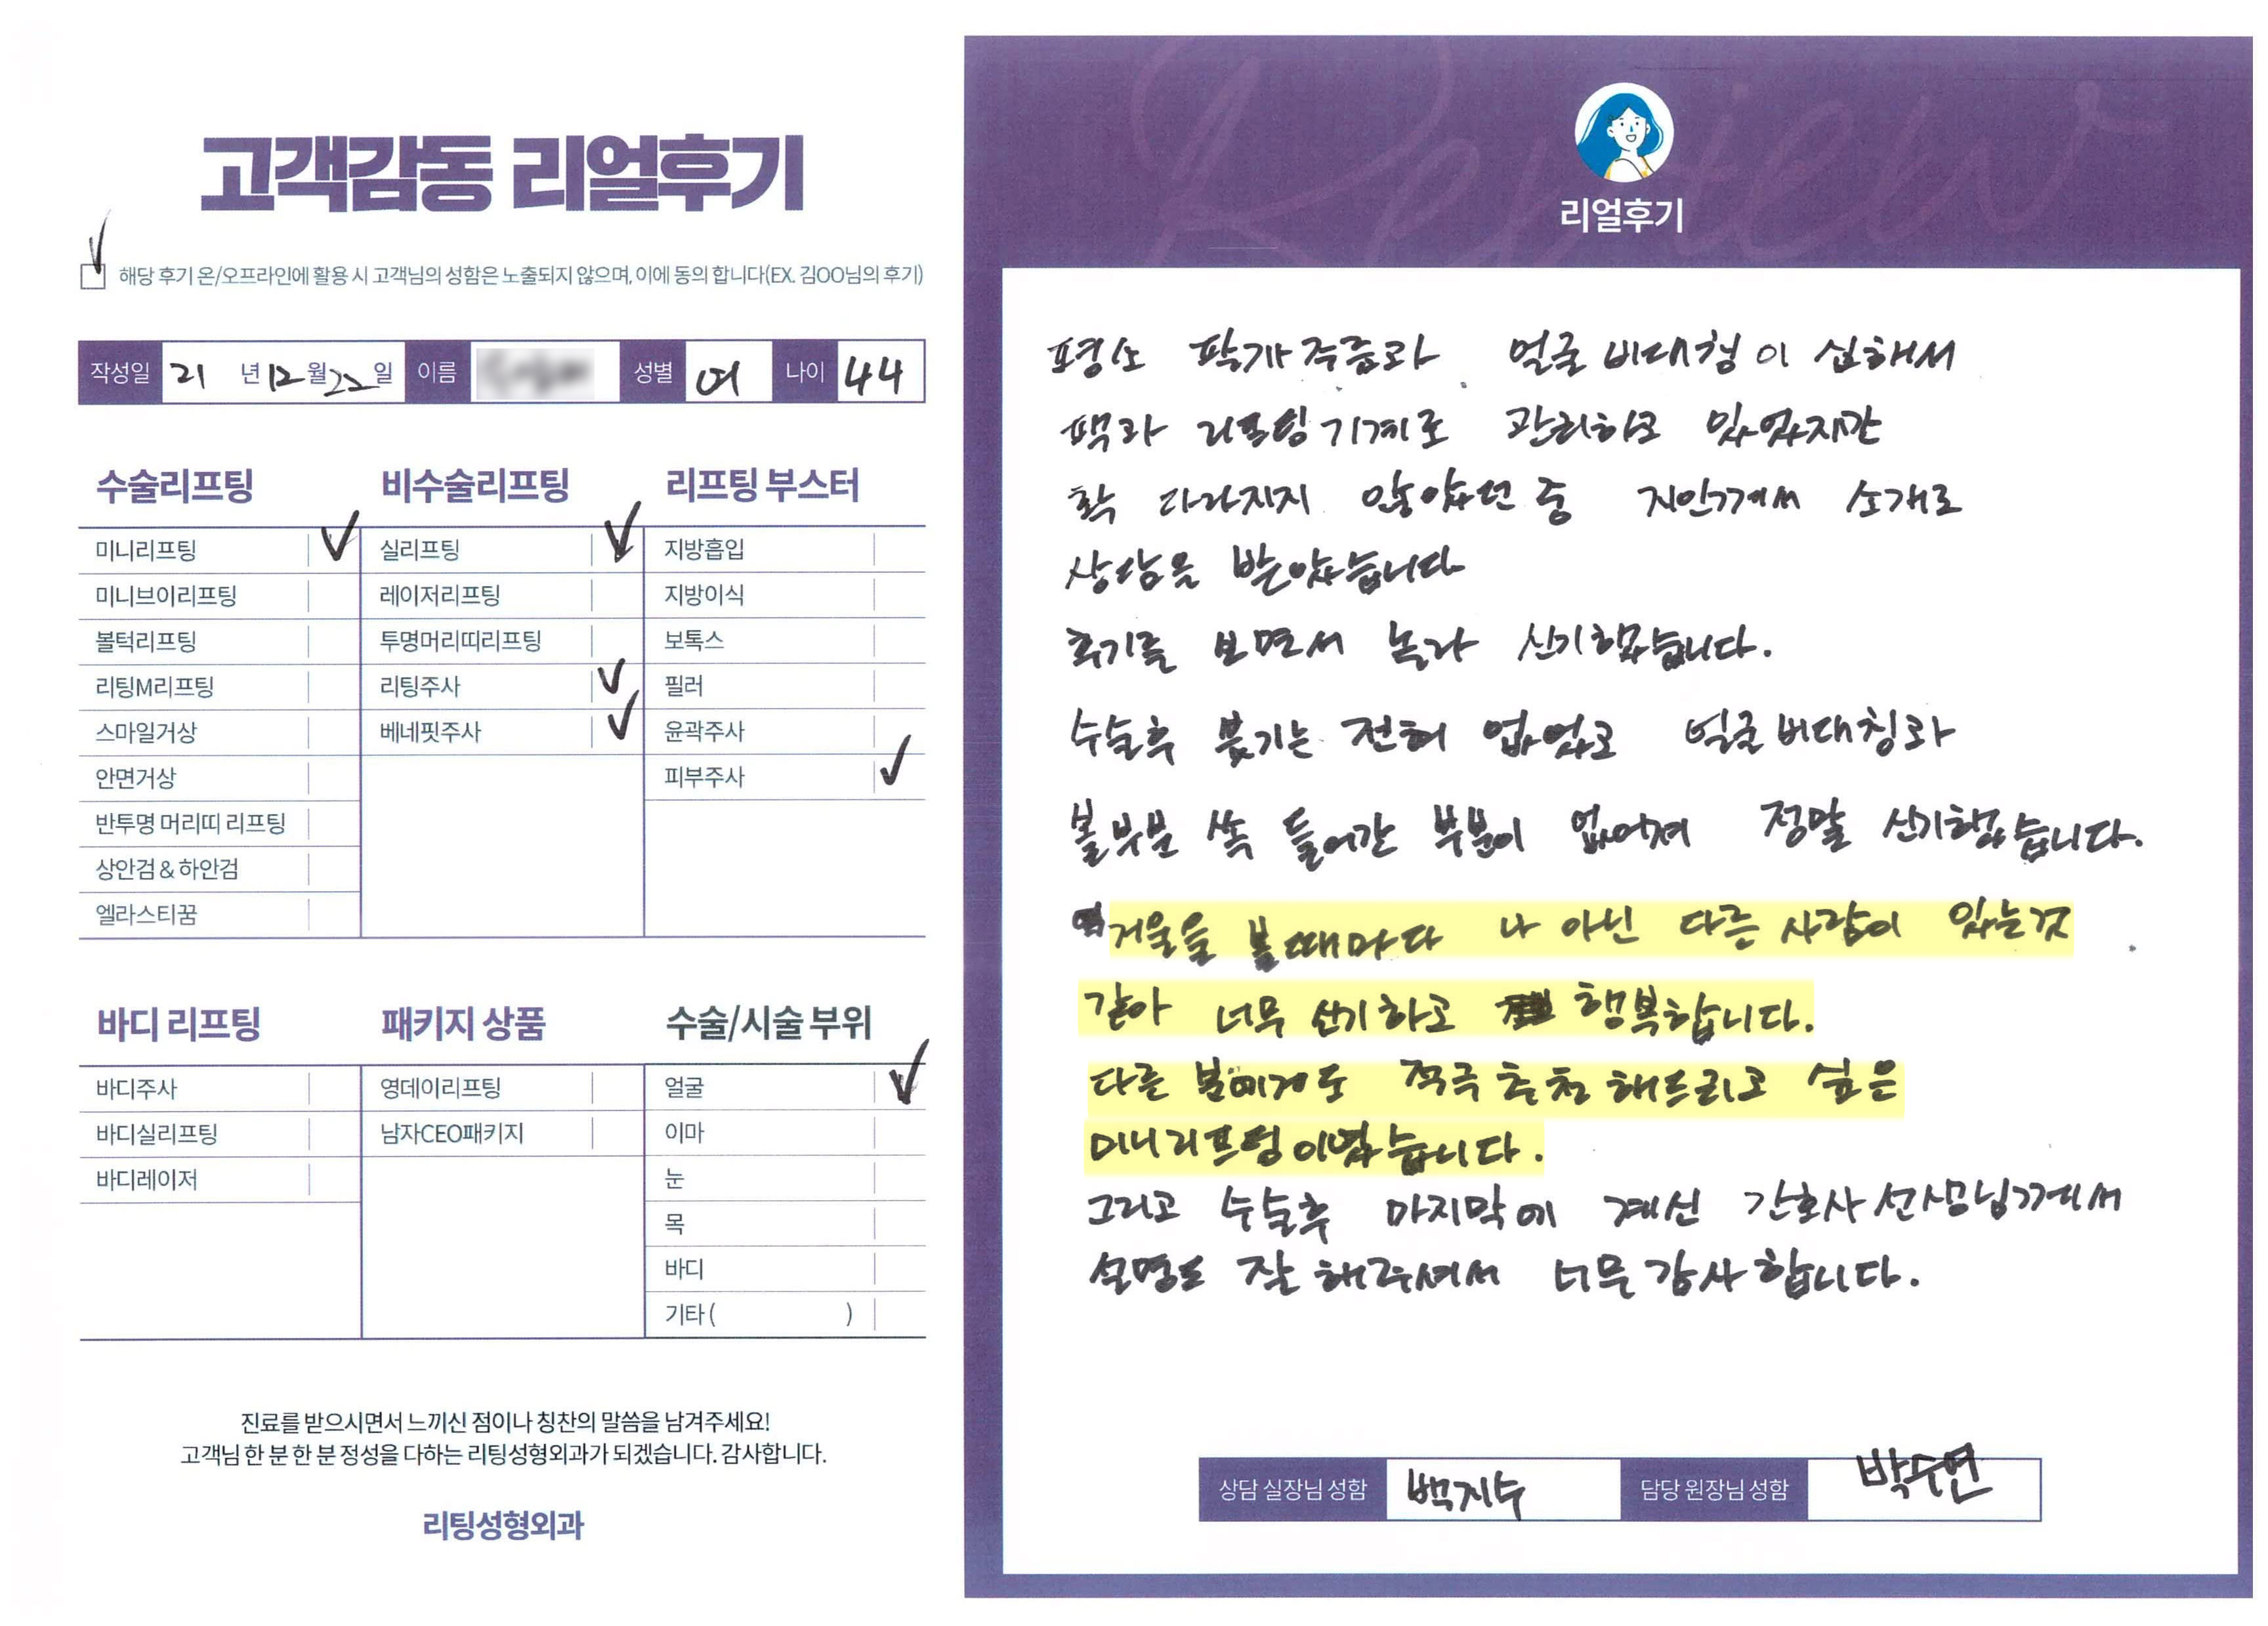 고객감동 리얼후기
해당 후기 온/오프라인에 활용 시 고객님의 성함은 노출되지 않으며, 이에 동의 합니다(EX. 김OO님의 후기)
작성일 21 년 12 월 22 일 이름 성별 여 나이 44
수술리프팅
미니리프팅
미니브이리프팅
볼턱리프팅
리팅M리프팅
스마일거상
안면거상
반투명 머리띠 리프팅
상안검 & 하안검
엘라스티꿈
비수술리프팅
실리프팅
레이저리프팅
투명머리띠리프팅
리팅주사
베네핏주사
리프팅 부스터
지방흡입
지방이식
보톡스
필러
윤곽주사
피부주사
바디 리프팅
바디주사
바디실리프팅
바디레이저
패키지 상품
영데이리프팅
남자CEO패키지
수술/시술 부위
얼굴
이마
눈
목
바디
기타 ( )
진료를 받으시면서 느끼신 점이나 칭찬의 말씀을 남겨주세요!
고객님 한 분 한 분 정성을 다하는 리팅성형외과가 되겠습니다. 감사합니다.
리팅성형외과
Review
리얼후기
평소 팔자주름과 얼굴 비대칭이 심해서
팩과 리프팅기계로 관리하고 있었지만
확 다라지지 않았던 중 지인께서 소개로
상담을 받았습니다
후기를 보면서 놀라 신기했습니다.
수술후 붓기는 전혀 없었고 얼굴비대칭과
볼부분 쏙 들어간 부분이 없어져 정말 신기했습니다.
거울을 볼때마다 나 아닌 다른 사람이 있는것
같아 너무 신기하고 행복합니다.
다른 분에게도 적극 추천 해드리고 싶은
미니리프팅이였습니다.
그리고 수술후 마지막에 계신 간호사 선생님께서
설명도 잘 해주셔서 너무 감사합니다.
상담 실장님 성함 백지수 담당 원장님 성함 박수연